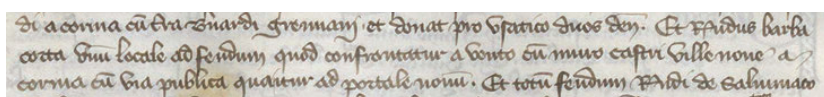 di a corina cu͞ t͞ra b͞nardi gremiani · et donat pro usatico duos de͞n · Et R͞ndus barba
corta unu͞ locale ad feudum quod confrontatur a vento cu͞ muro castri ville noue · a
corina cu͞ via publica qua itur ad portale nouu͞ · Et totu͞ feudum R͞ndi de saluinhaco